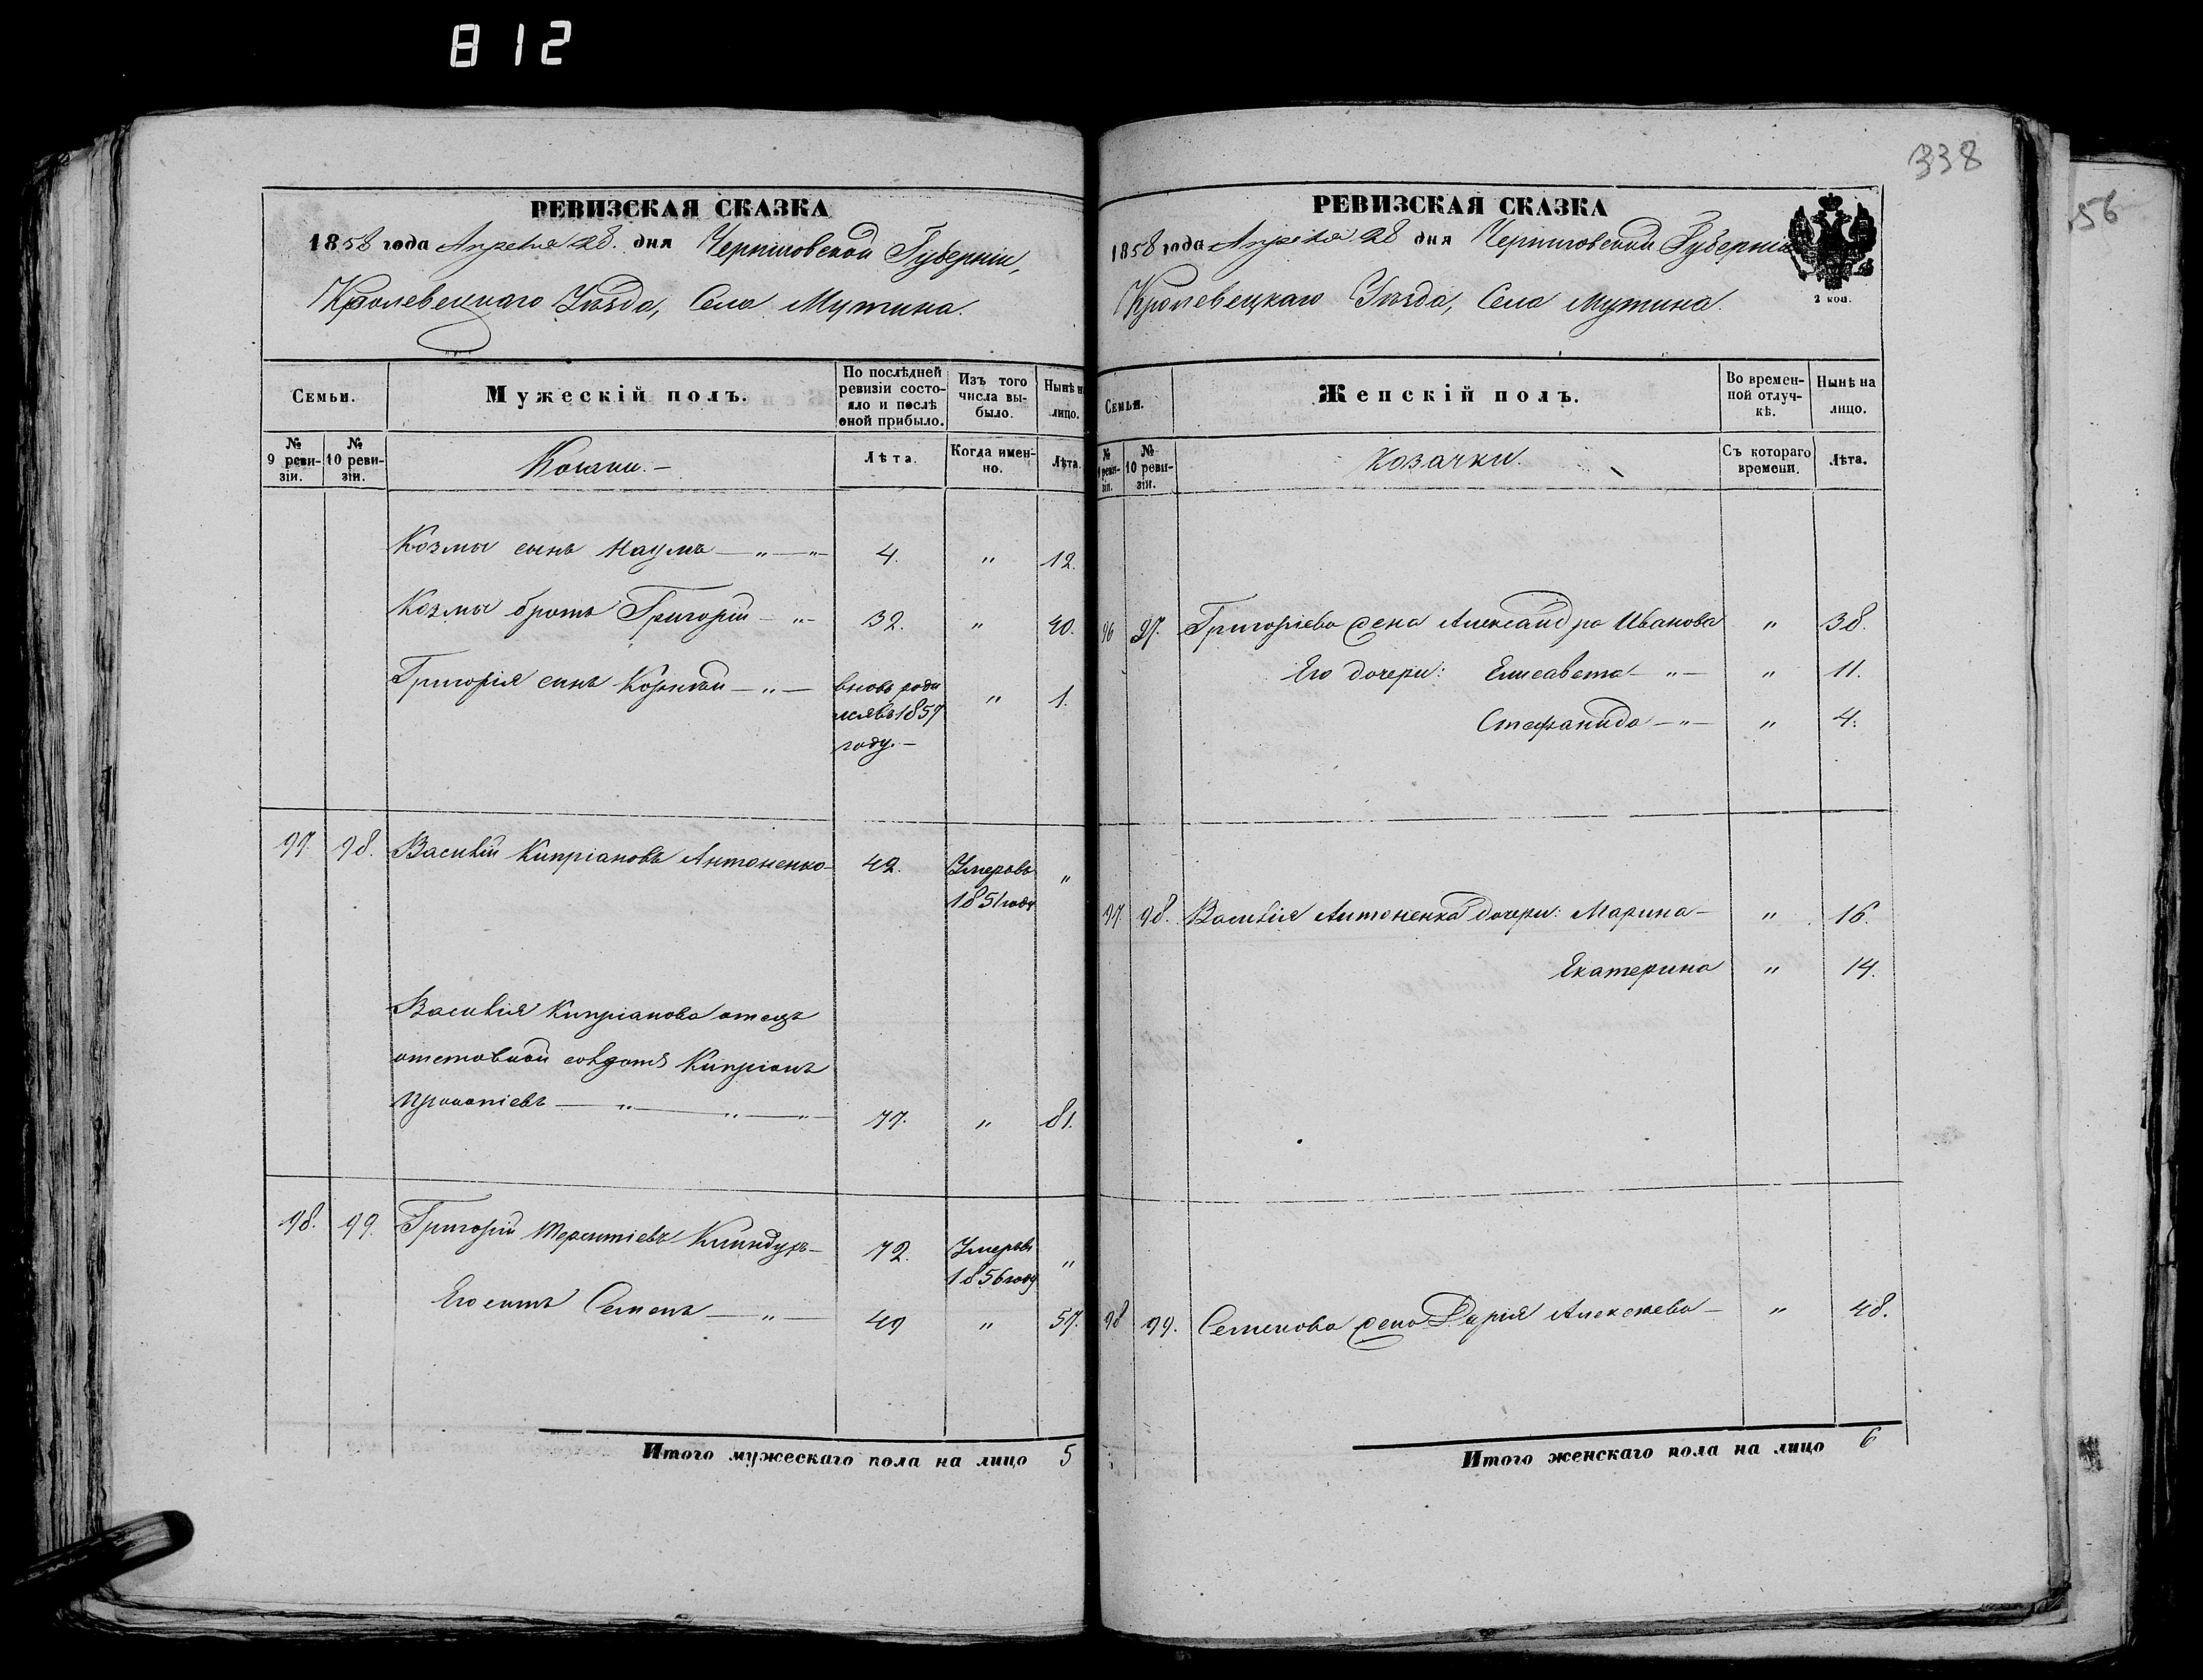 812
338
56
РЕВИЗСКАЯ СКАЗКА
1858 года Апреля 28. дня Черниговской Губерніи,
Кролевецкаго Уѣзда, Села Мутина.
Семьи.
Мужескій полъ.
По послѣдней ревизіи состояло и послѣ оной прибыло.
Изъ того числа выбыло.
Нынѣ на лицо.
№ 9 ревизіи.
№ 10 ревизіи.
Козаки. —
Лѣта.
Когда именно.
Лѣта.
Козмы сынъ Наумъ — „ — „ — 4. „ 12.
Козмы братъ Григорій — „ — 32. „ 40.
Григорія сынъ Корнилій — „ — вновь роди „ 1.
лся въ 1857
году. —
97. 98. Василій Кипріановъ Антоненко — 42. Умеръ въ „
1851 году
Василія Кипріанова отецъ
отставной солдатъ Кипріанъ
Прокопіевъ — „ — „ — „ — 77. „ 81.
98. 99. Григорій Терентіевъ — 72. Умеръ въ „
1856 году
Его сынъ Семенъ — „ — 49 „ 57.
Итого мужескаго пола на лицо 5
РЕВИЗСКАЯ СКАЗКА
1858 года Апреля 28 дня Черниговской Губерніи
Кролевецкаго Уѣзда, Села Мутина.
2 коп.
Семьи.
Женскій полъ.
Во временной отлучкѣ.
Нынѣ на лицо.
№ 9 ревизіи.
№ 10 ревизіи.
Козачки.
Съ котораго времени.
Лѣта.
96 97. Григоріева жена Александра Иванова „ 38.
Его дочери: Елисавета — „ — „ 11.
Стефанида — „ — „ 4.
97 98. Василія Антоненка дочери: Марина — „ 16.
Екатерина „ 14.
98 99. Семенова жена Дарія Алексѣева — „ 48.
Итого женскаго пола на лицо 6